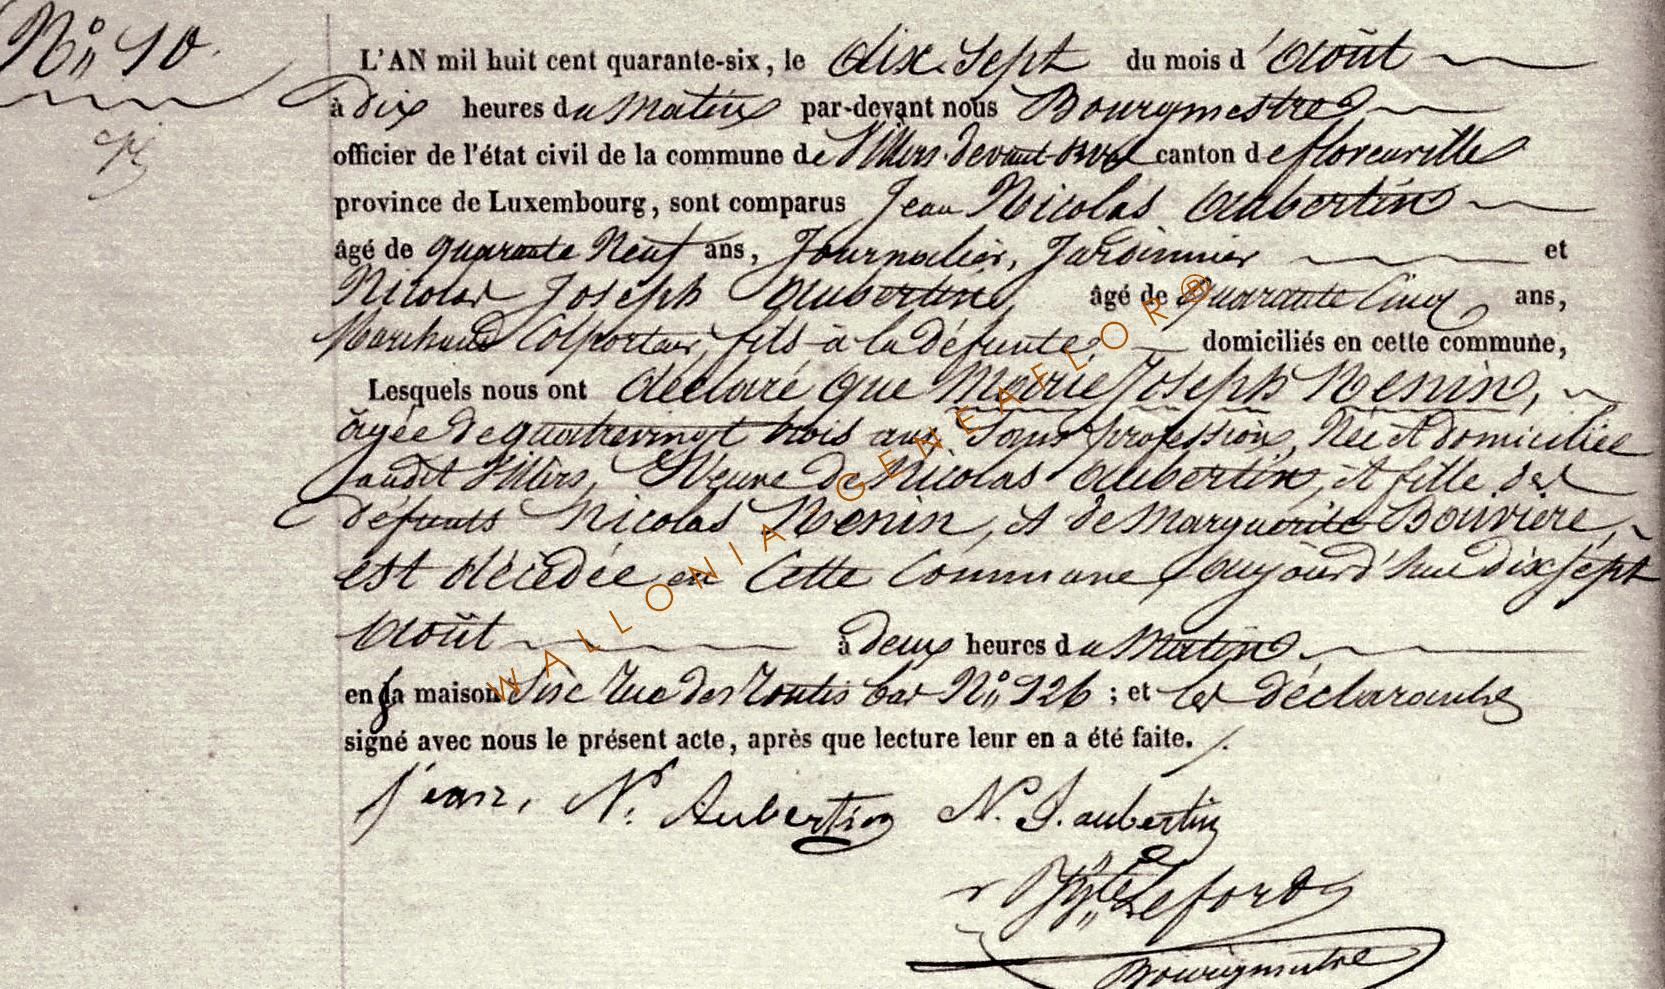 Nº 10.
L'AN mil huit cent quarante-six, le dix Sept du mois d'Août
à dix heures du Matin par-devant nous Bourgmestre
officier de l'état civil de la commune de Villers-devant-Orval canton de florenville
province de Luxembourg, sont comparus Jean Nicolas Aubertin
âgé de quarante Neuf ans, Journalier, Jardinnier et
Nicolas Joseph Aubertin, âgé de Quarante Cinq ans,
Marchand Colporteur, fils à la défunte, domiciliés en cette commune,
Lesquels nous ont déclaré que Marie Joseph Nenin,
âgée de quatrevingt trois ans Sans profession, Née et domiciliée
audit Villers, Veuve de Nicolas Aubertin, et fille des
défunts Nicolas Nenin, et de Marguerite Bouvière,
est décédée en Cette Commune, aujourd'hui dix sept
Août à deux heures du Matin.
en sa maison Sise rue des bas Nº 126 ; et les déclarants
signé avec nous le présent acte, après que lecture leur en a été faite. /.
jean, Ns. Aubertin N. J. aubertin
Hyte Lefort
Bourgmestre
WALLONIA GENEAFLOR®